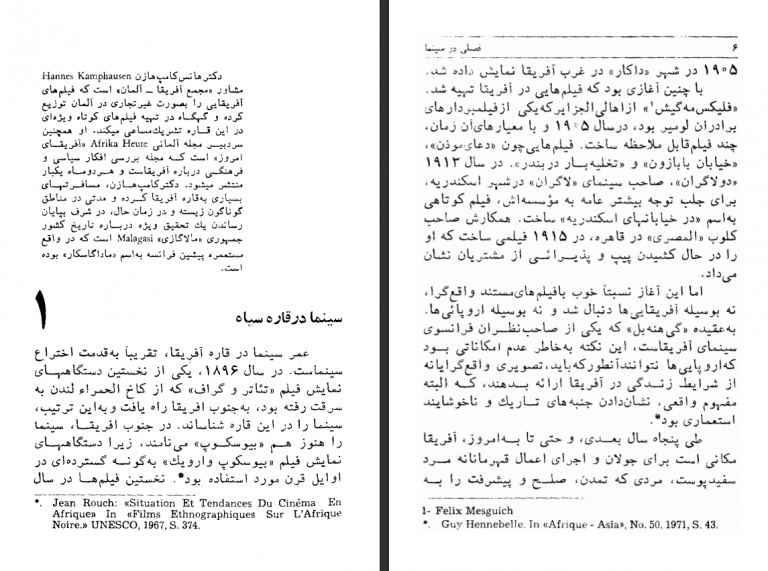 دکتر هانس کامپ‌هازن Hannes Kamphausen
مشاور «مجمع آفریقا ـ آلمان» است که فیلم‌های
آفریقایی را بصورت غیرتجاری در آلمان توزیع
کرده و گهگاه در تهیه فیلم‌های کوتاه ویژه‌ای
در این قاره تشریك‌مساعی میکند. او همچنین
سردبیر مجله آلمانی Afrika Heute «آفریقای
امروز» است که مجله بررسی افکار سیاسی و
فرهنگی درباره آفریقاست و هردوماه یکبار
منتشر میشود. دکترکامپ‌هازن، مسافرتهای
بسیاری به‌قاره آفریقا کرده و مدتی در مناطق
گوناگون زیسته و در زمان حال، در شرف بپایان
رساندن یك تحقیق ویژه درباره تاریخ کشور
جمهوری «مالاگازی» Malagasi است که در واقع
مستعمره پیشین فرانسه به‌اسم «ماداگاسکار» بوده
است.
سینما در قاره سیاه
۱
عمر سینما در قاره آفریقا، تقریباً به‌قدمت اختراع
سینماست. در سال ۱۸۹۶، یکی از نخستین دستگاههای
نمایش فیلم «تئاتر و گراف» که از کاخ الحمراء لندن به
سرقت رفته بود، به‌جنوب افریقا راه یافت و به‌این ترتیب،
سینما را در این قاره شناساند. در جنوب افریقا، سینما
را هنوز هم «بیوسکوپ» می‌نامند، زیرا دستگاههای
نمایش فیلم «بیوسکوپ وارویك» به‌گونه گسترده‌ای در
اوایل قرن مورد استفاده بود*. نخستین فیلم‌ها در سال
*. Jean Rouch: «Situation Et Tendances Du Cinéma En
Afrique» In «Films Ethnographiques Sur L'Afrique
Noire.» UNESCO, 1967, S. 374.
۶ فصلی در سینما
۱۹۰۵ در شهر «داکار» در غرب آفریقا نمایش داده شد.
با چنین آغازی بود که فیلم‌هایی در آفریقا تهیه شد.
«فلیکس‌مه‌گیش۱» ازاهالی‌الجزایرکه‌یکی ازفیلمبردارهای
برادران لومیر بود، درسال ۱۹۰۵ و با معیارهای‌آن زمان،
چند فیلم‌قابل ملاحظه ساخت. فیلم‌هایی‌چون «دعای‌موذن»،
«خیابان باب‌ازون» و «تخلیه‌بار دربندر». در سال ۱۹۱۳
«دولاگران»، صاحب سینمای «لاگران» درشهر اسکندریه،
برای جلب توجه بیشتر عامه به مؤسسه‌اش، فیلم کوتاهی
به‌اسم «در خیابانهای اسکندریه» ساخت. همکارش صاحب
کلوب «المصری» در قاهره، در ۱۹۱۵ فیلمی ساخت که او
را در حال کشیدن پیپ و پذیرائی از مشتریان نشان
می‌داد.
اما این آغاز نسبتاً خوب بافیلم‌های‌مستند واقع‌گرا،
نه بوسیله آفریقایی‌ها دنبال شد و نه بوسیله اروپائی‌ها.
به‌عقیده «گی‌هنه‌بل» که یکی از صاحب‌نظران فرانسوی
سینمای آفریقاست، این نکته به‌خاطر عدم امکاناتی بود
که‌اروپایی‌ها نتوانندآنطورکه‌باید،تصویری واقع‌گرایانه
از شرایط زندگی در آفریقا ارائه بدهند، که البته
مفهوم واقعی، نشان‌دادن جنبه‌های تاریك و ناخوشایند
استعماری بود*.
طی پنجاه سال بعدی، و حتی تا به‌امروز، آفریقا
مکانی است برای جولان و اجرای اعمال قهرمانانه مرد
سفیدپوست، مردی که تمدن، صلح و پیشرفت را به
1- Felix Mesguich
*. Guy Hennebelle. In «Afrique - Asia», No. 50, 1971, S. 43.